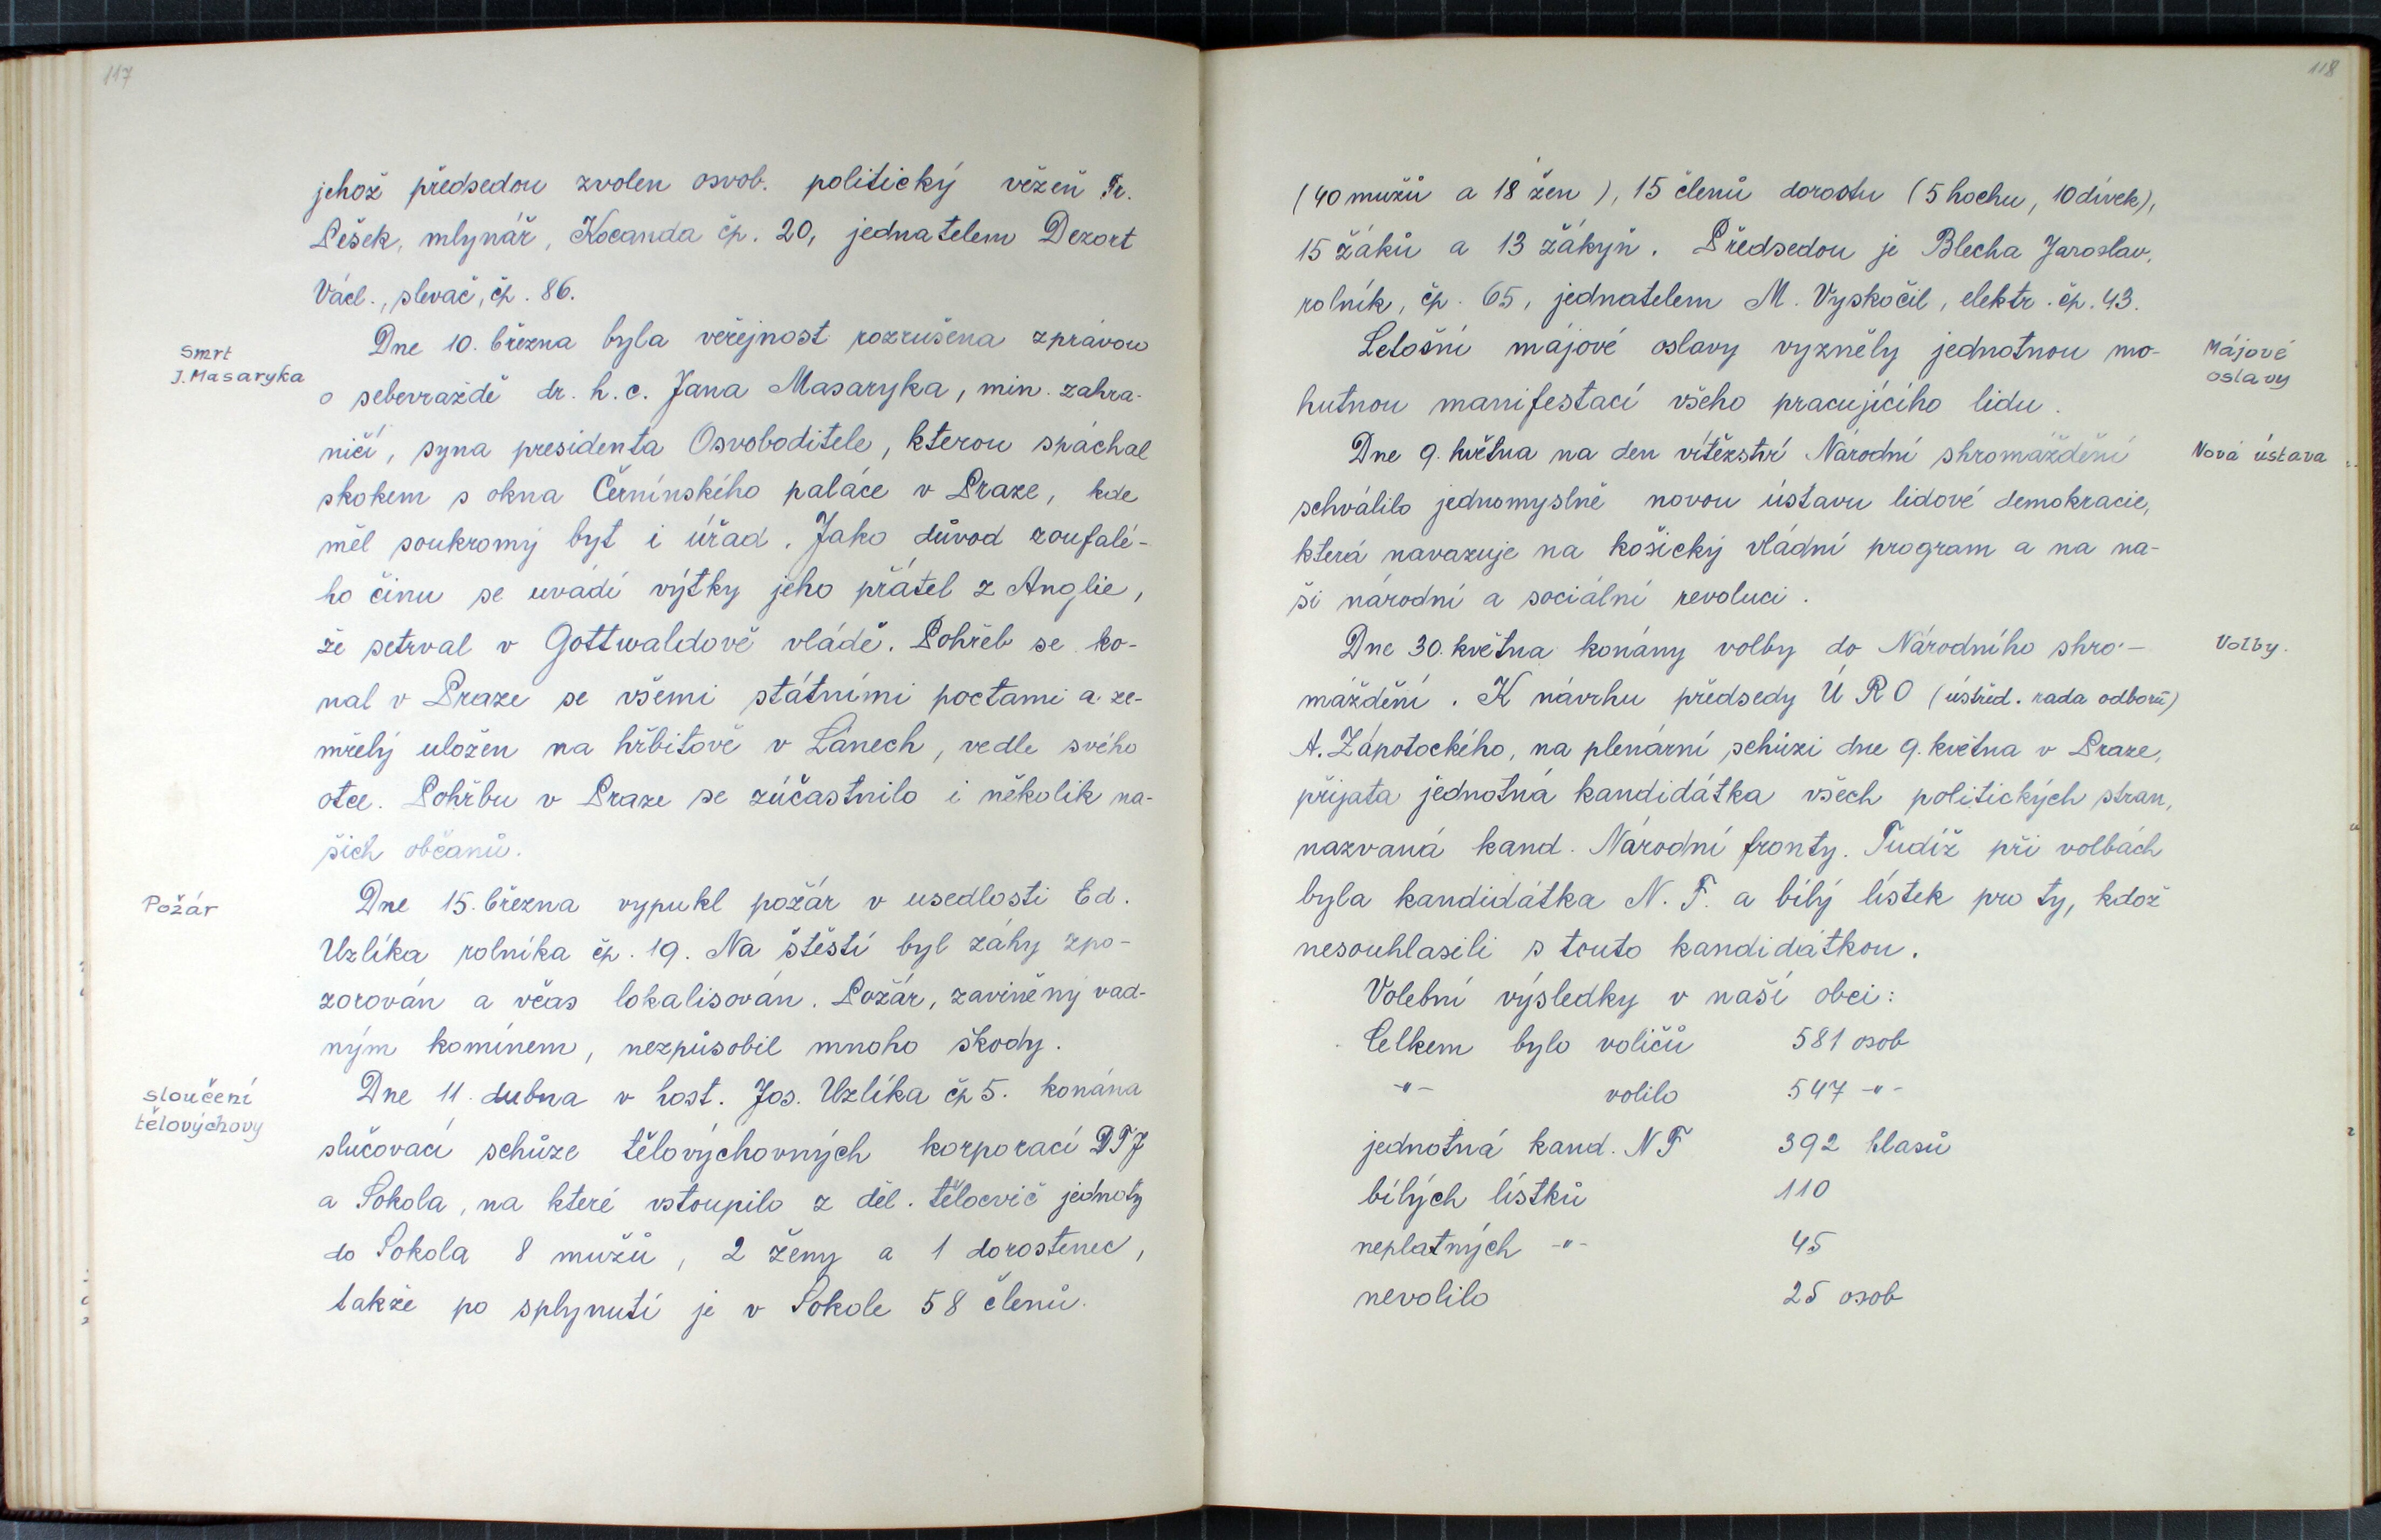 117
jehož předsedou zvolen osvob. politický vězeň Fr.
Pešek, mlynář, Kocanda čp. 20, jednatelem Dezort
Václ., slevač, čp. 86.
Smrt
J. Masaryka
Dne 10. března byla veřejnost rozrušena zprávou
o sebevraždě dr. h. c. Jana Masaryka, min. zahra-
ničí, syna presidenta Osvoboditele, kterou spáchal
skokem s okna Černínského paláce v Praze, kde
měl soukromý byt i úřad. Jako důvod zoufalé-
ho činu se uvádí výtky jeho přátel z Anglie,
že setrval v Gottwaldově vládě. Pohřeb se ko-
nal v Praze se všemi státními poctami a ze-
mřelý uložen na hřbitově v Lánech, vedle svého
otce. Pohřbu v Praze se zúčastnilo i několik na-
šich občanů.
Požár
Dne 15. března vypukl požár v usedlosti Ed.
Uzlíka rolníka čp. 19. Na štěstí byl záhy zpo-
zorován a včas lokalisován. Požár, zaviněný vad-
ným komínem, nezpůsobil mnoho škody.
Sloučení
tělovýchovy
Dne 11. dubna v host. Jos. Uzlíka čp 5. konána
slučovací schůze tělovýchovných korporací DTJ
a Sokola, na které vstoupilo z děl. tělocvič jednoty
do Sokola 8 mužů, 2 ženy a 1 dorostenec,
takže po splynutí je v Sokole 58 členů.
118
(40 mužů a 18 žen), 15 členů dorostu (5 hochu, 10 dívek),
15 žáků a 13 žákyň. Předsedou je Blecha Jaroslav,
rolník, čp. 65, jednatelem M. Vyskočil, elektr. čp. 43.
Májové
oslavy
Letošní májové oslavy vyzněly jednotnou mo-
hutnou manifestací všeho pracujícího lidu.
Nová ústava
Dne 9. května na den vítězství Národní shromáždění
schválilo jednomyslně novou ústavu lidové demokracie,
která navazuje na košický vládní program a na na-
ši národní a sociální revoluci.
Volby.
Dne 30. května konány volby do Národního shro-
máždění. K návrhu předsedy Ú R O (ústřed. rada odborů)
A. Zápotockého, na plenární schůzi dne 9. května v Praze,
přijata jednotná kandidátka všech politických stran,
nazvaná kand. Národní fronty. Tudíž při volbách
byla kandidátka N. F. a bílý lístek pro ty, kdož
nesouhlasili s touto kandidátkou.
Volební výsledky v naší obci:
Celkem bylo voličů 581 osob
-"- volilo 547 -"-
jednotná kand. NF 392 hlasů
bílých lístků 110
neplatných -"- 45
nevolilo 25 osob